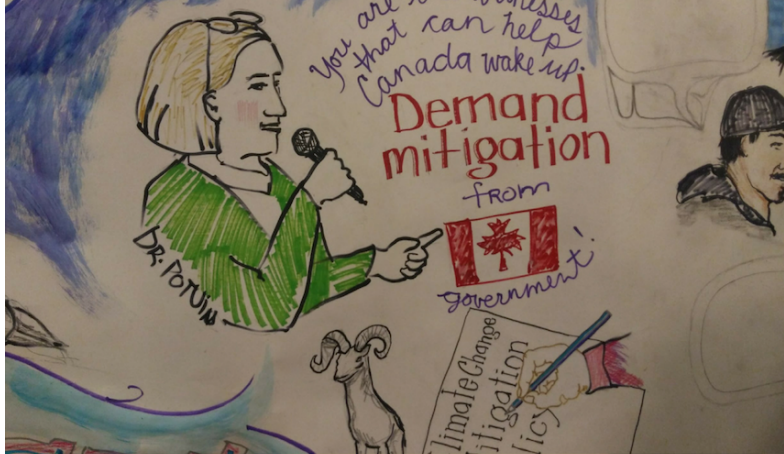 You are
that can help
Canada wake up.
Demand
mitigation
from
government!
DR. POTVIN
Climate Change
Mitigation
Policy